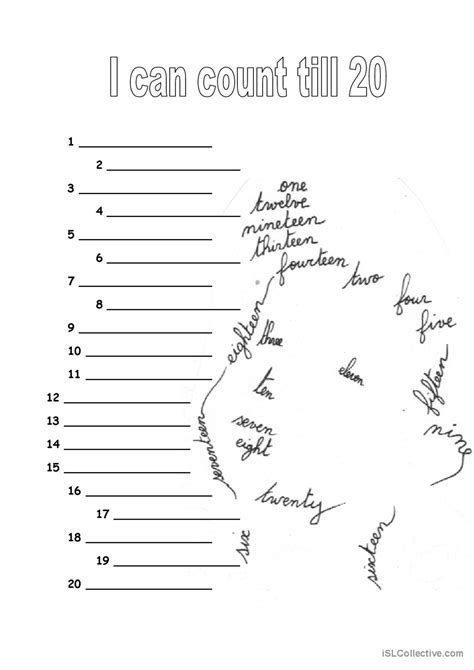 I can count till 20
1
2
3
4
5
6
7
8
9
10
11
12
13
14
15
16
17
18
19
20
one
twelve
nineteen
thirteen
fourteen
two
four
five
eighteen
three
eleven
fifteen
ten
nine
seven
eight
seventeen
twenty
six
sixteen
iSLCollective.com